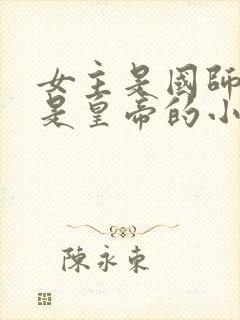 女主是國師
是皇帝的小
陳永東